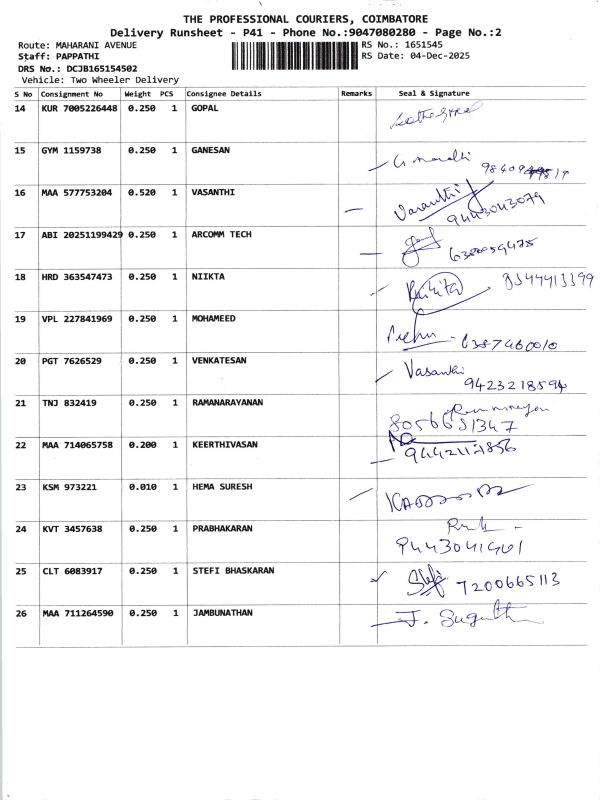 THE PROFESSIONAL COURIERS, COIMBATORE
Delivery Runsheet - P41 - Phone No.:9047080280 - Page No.:2
Route: MAHARANI AVENUE RS No.: 1651545
Staff: PAPPATHI RS Date: 04-Dec-2025
DRS No.: DCJB165154502
Vehicle: Two Wheeler Delivery
S No Consignment No Weight PCS Consignee Details Remarks Seal & Signature
14 KUR 7005226448 0.250 1 GOPAL
15 GYM 1159738 0.250 1 GANESAN
16 MAA 577753204 0.520 1 VASANTHI Vasanthi
9443043079
17 ABI 20251199429 0.250 1 ARCOMM TECH
6380059475
18 HRD 363547473 0.250 1 NIIKTA
19 VPL 227841969 0.250 1 MOHAMEED
6387460010
20 PGT 7626529 0.250 1 VENKATESAN Vasanthi
9423218594
21 TNJ 832419 0.250 1 RAMANARAYANAN
8056651347
22 MAA 714065758 0.200 1 KEERTHIVASAN
9442117856
23 KSM 973221 0.010 1 HEMA SURESH
24 KVT 3457638 0.250 1 PRABHAKARAN
9443041461
25 CLT 6083917 0.250 1 STEFI BHASKARAN Stefi 7200665113
26 MAA 711264590 0.250 1 JAMBUNATHAN